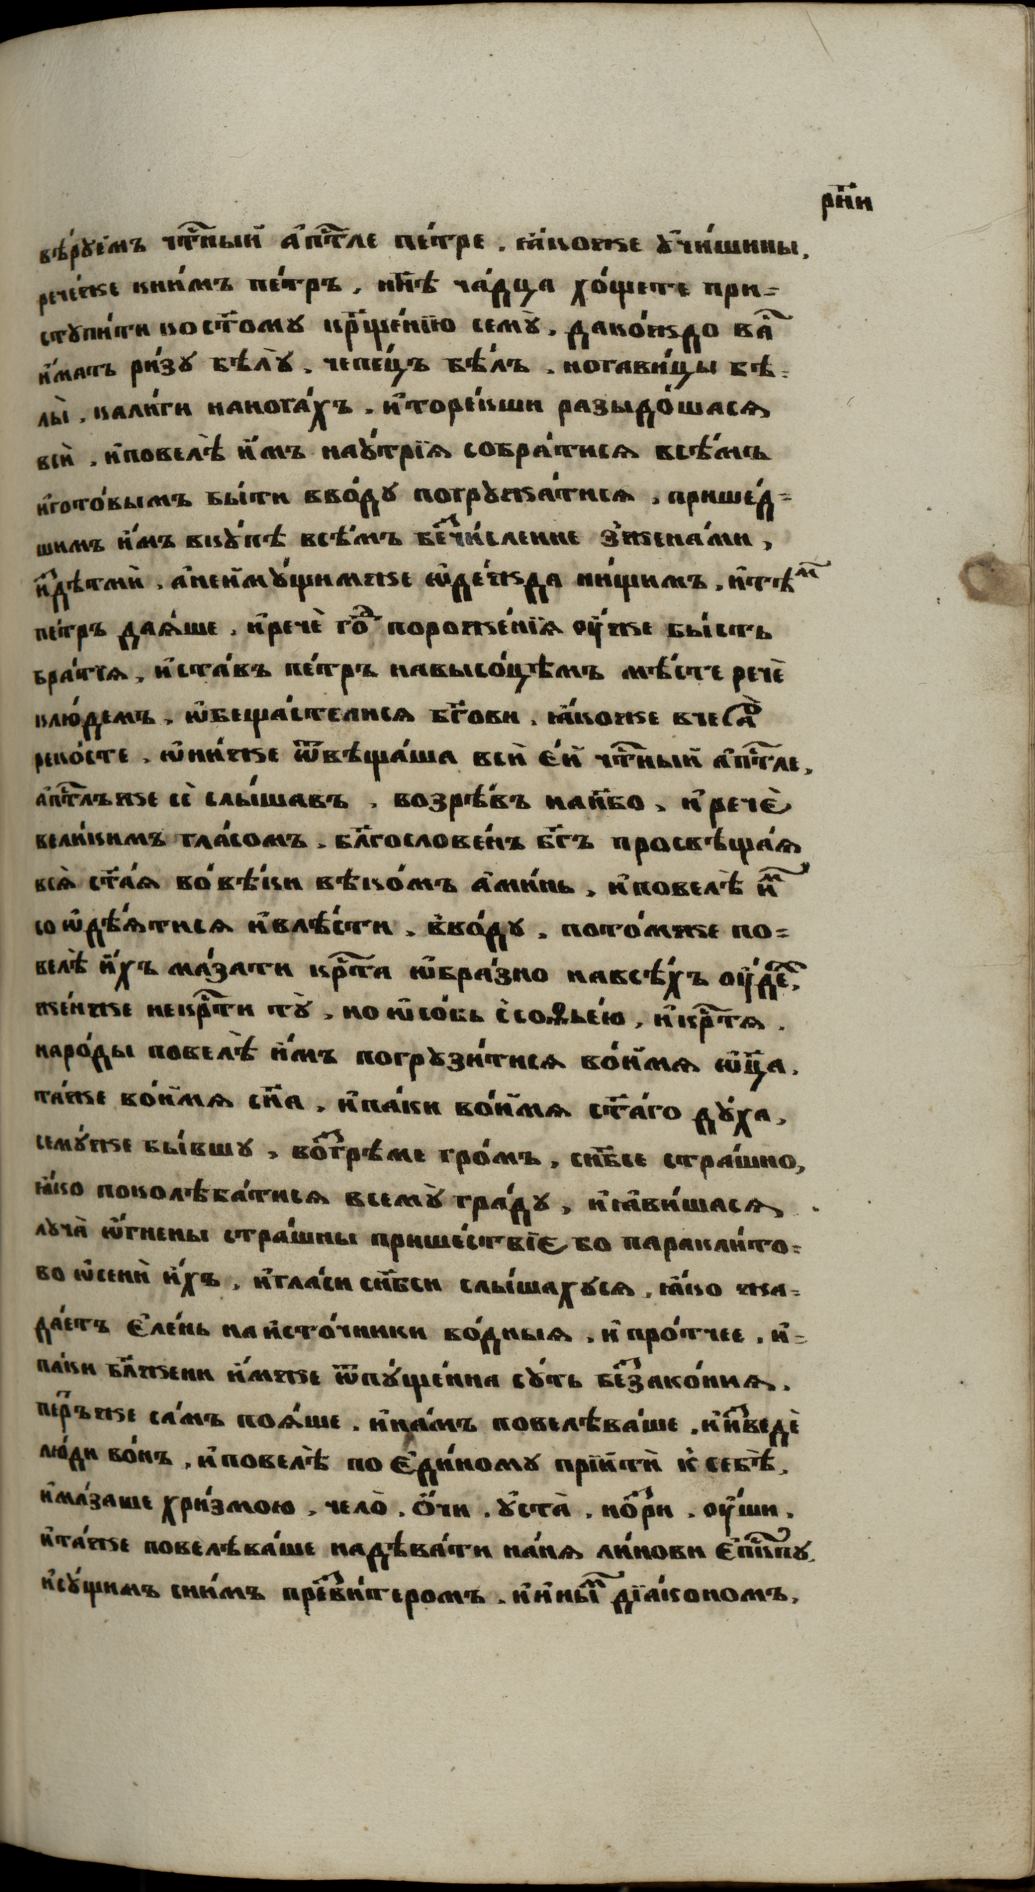 рн҃и
вѣ́руемъ чт҃ный а҆пⷭ҇тле пе́тре . ꙗ҆́коже ᲂу҆чи́шины ,
рече́же кни́мъ пе́тръ , нн҃ѣ ча́дца хо́щете при=
ступи́ти ко ст҃о́му крⷭ҇ще́нїю семꙋ̀ , дако́ждо ва́
и҆́мать ри́зу бѣ́лꙋ , чепе́цъ бѣ́лъ , ногави́цы бѣ=
лы̀ , кали́ги нанога́хъ . и҆торе́кши разыдо́шася
всѝ . и҆повелѣ̀ и҆̀мъ наꙋ́трїѧ собра́тисѧ всѣ́мъ
и҆гото́вымъ бы́ти вво́ду погружа́тисѧ , прише́д=
шимъ и҆́мъ вкꙋ́пѣ всѣ́мъ бе́счи́сленне зже́нами ,
и҆дѣтмѝ . а҆неимꙋ́щимже ѡ҆де́жда ни́щимъ . и҆тѣⷨ
пе́тръ даѧ́ше . и҆речѐ гоⷭ҇ порожде́нїѧ оу҆́же бы́сть
бра́тїѧ , и҆ста́въ пе́тръ навысо́цѣмъ мѣ́сте речѐ
клю́демъ , ѡ҆беща́стелисѧ бг҃ови , ꙗ҆́коже вчера̀
реко́сте . ѡ҆ни́же ѿвѣща́ша всѝ е҆́й чт҃ный а҆пⷭ҇тле ,
а҆пⷭ҇тлъже сѐ слы́шавъ , возрѣ́въ нанб҃о , и҆ речѐ
вели́кимъ гла́сомъ . бл҃гослове́нъ бг҃ъ просвѣща́ѧ
всѧ̀ ст҃а́ѧ во́вѣ́ки вѣко́мъ а҆ми́нь , и҆повелѣ̀ и҆ⷨ
соѡ҆дѣ́ѧтисѧ и҆влѣ́сти . в҆во́ду , пото́мже по=
велѣ̀ и҆́хъ ма́зати крⷭ҇та ѡ҆бра́зно навсѣ́хъ оу҆де́ⷯ,
же́нже некрⷭ҇ти тꙋ̀ , но ѡ҆со́бь с̾соѳье́ю , и҆крⷭ҇тѧ .
наро́ды повелѣ̀ и҆̀мъ погрꙋзи́тисѧ во́и҆мѧ ѡ҆ц҃а ,
та́же во́и҆мѧ сн҃а , и҆па́ки во́и҆мѧ ст҃а́го дꙋ́ха ,
семꙋ́же бы́вшу , возгрѣ́ме гро́мъ , снб҃се стра́шно ,
ꙗ҆́ко поколѣба́тисѧ всемꙋ̀ гра́дꙋ , и҆ꙗ҆ви́шасѧ
лꙋча̀ ѡ҆́гнены стра́шны прише́ствїе бо паракли́то=
во ѡ҆сенѝ и҆́хъ , и҆гла́си снб҃си слы́шахꙋсѧ , ꙗ҆́ко жа=
да́етъ є҆ле́нь на и҆сто́чники во́дныѧ , и҆ про́тчее . и҆=
па́ки бл҃жени и҆́мже ѿпꙋще́нна сꙋ́ть беззако́нїѧ ,
пе́тръже са́мъ поѧ́ше . и҆на́мъ повелѣва́ше . и҆и҆зведѐ
лю́ди во́нъ . и҆повелѣ̀ по є҆ди́номꙋ прїи҆тѝ к̾ себѣ̀ ,
и҆ма́заше хри́змою , чело̀ . о҆́чи . ᲂу҆ста̀ , но́зⷣри . оу҆́ши .
и҆та́же повелѣва́ше надѣва́ти на́нѧ ли́нови є҆пⷭ҇кпꙋ
и҆сꙋ́щимъ сни́мъ презви́теромъ . и҆и҆ны̀ⷨ дїа́кономъ .